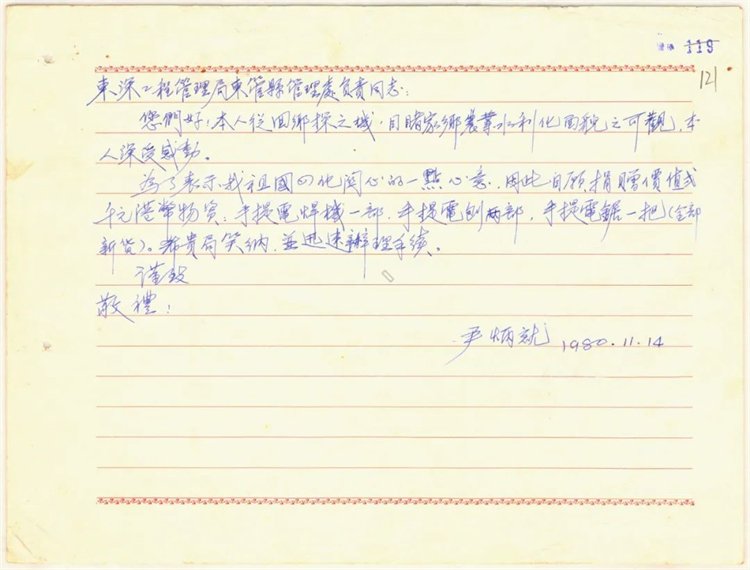 119
121
東深工程管理局東管縣管理處负责同志：
您們好！本人從回鄉探之城，目睹家鄉農業水利化面貌之可觀，本
人深受感動。
為了表示我祖國四化関心的一點心意，因此自願捐贈價值式
千元港幣物資：手提電焊機一部，手提電刨两部，手提電鋸一把（全部
新货）。希貴局笑纳，並迅速辦理手续。
谨致
敬禮！
尹炳就 1980.11.14